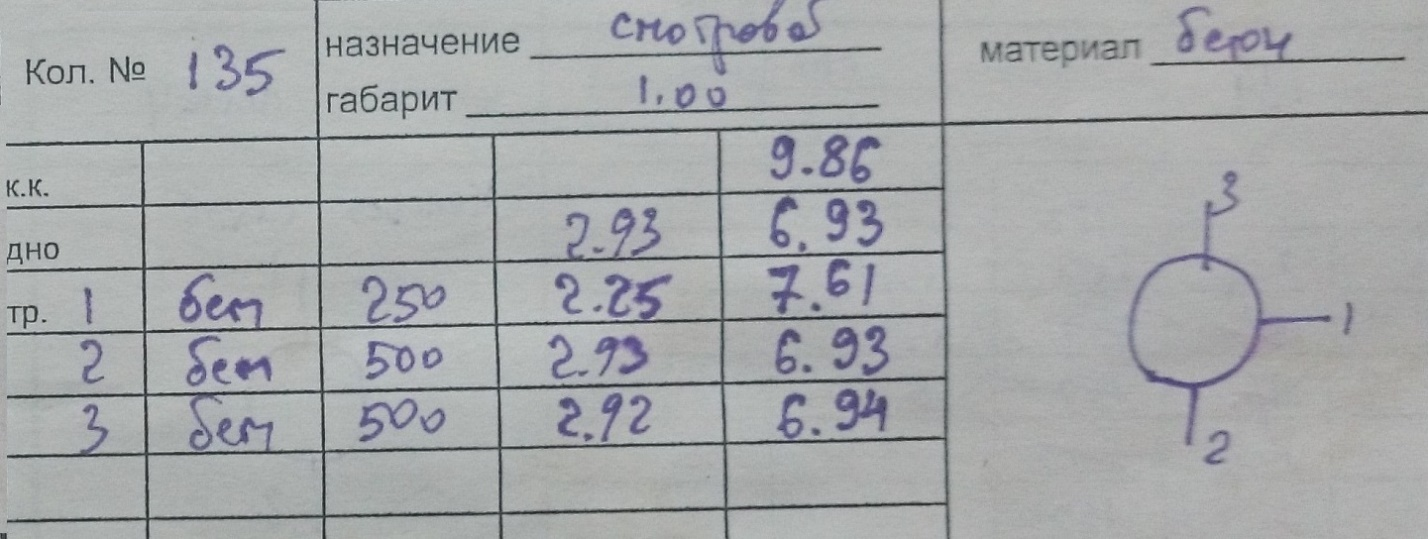 Кол. № 135
назначение смотровой
габарит 1.00
материал бетон
к.к. 9.86
дно 2.93 6.93
тр. 1 бет 250 2.25 7.61
2 бет 500 2.93 6.93
3 бет 500 2.92 6.94
3
1
2